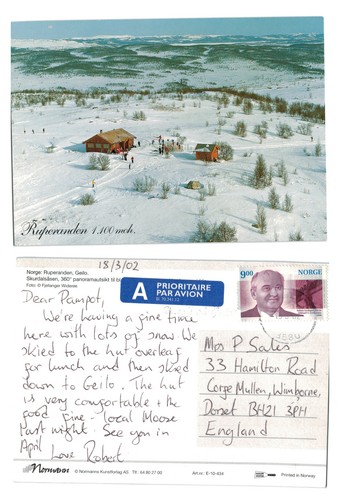 Ruperanden 1.100 moh.
18/3/02
Norge: Ruperanden, Geilo.
Skurdalsåsen, 360° panoramautsikt til
Foto: © Fjellanger Widerøe
A PRIORITAIRE
PAR AVION
9.00 NORGE
Dear Pampot,
We're having a fine time
here with lots of snow. We
skied to the hut overleaf
for lunch and then skied
down to Geilo. The hut
is very comfortable + the
food fine - local Moose
last night. See you in
April Love Robert
Mrs P Sales
33 Hamilton Road
Corge Mullen, Wimborne,
Dorset BH21 3PH
England
Normann
© Normanns Kunstforlag AS Tlf. 64 80 27 00
Art.nr.: E-16-404
Printed in Norway